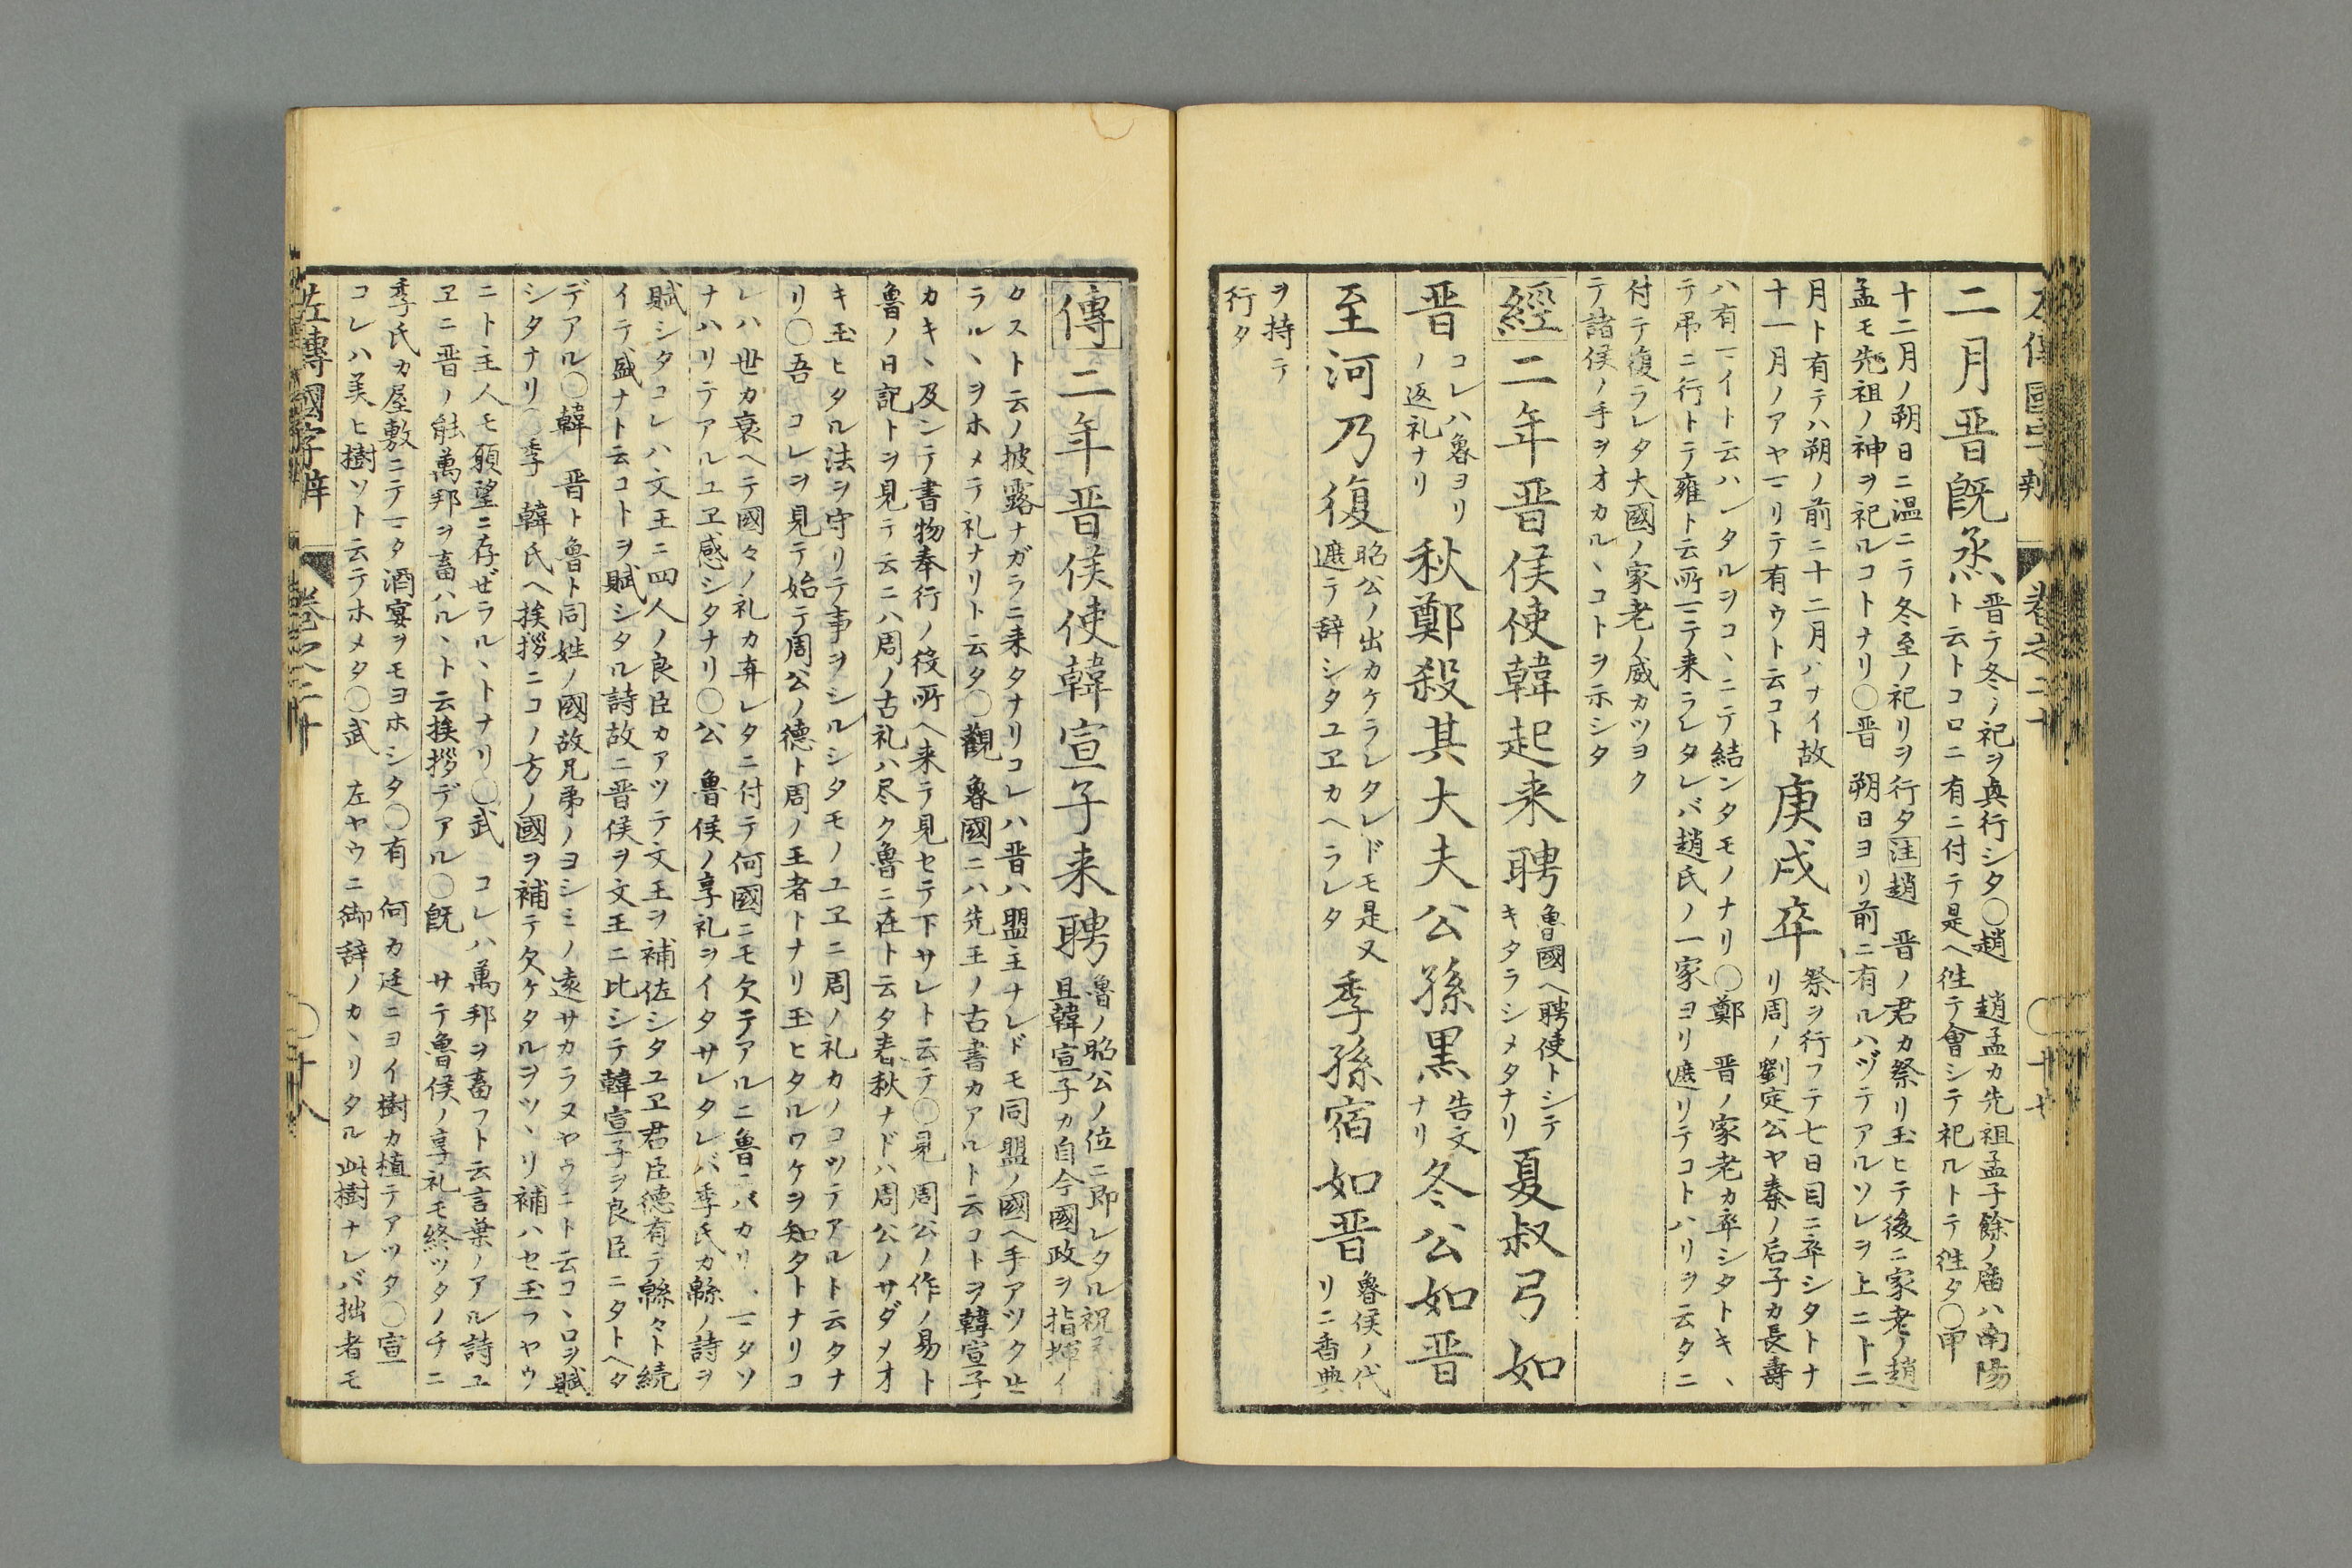 二月晋既烝
晋テ冬ノ祀ヲ真行シタ〇趙 趙孟カ先祖孟子餘ノ庿ハ南陽
ト云トコロニ有ニ付テ是ヘ徃テ會シテ祀ルトテ徃タ〇甲
十二月ノ朔日ニ温ニテ冬至ノ祀リヲ行タ注趙 晋ノ君カ祭リ玉ヒテ後ニ家老ノ趙
孟モ先祖ノ神ヲ祀ルコトナリ〇晋 朔日ヨリ前ニ有ルハヅテアルソレヲ上ニ十二
月ト有テハ朔ノ前ニ十二月ハナイ故
十一月ノアヤマリテ有ウト云コト
庚戌卒
祭ヲ行フテ七日目ニ卒シタトナ
リ周ノ劉定公ヤ秦ノ后子カ長壽
ハ有マイト云ハンタルヲコヽニテ結ンタモノナリ〇鄭 晋ノ家老カ卒シタトキヽ
テ吊ニ行トテ雍ト云所マテ来ラレタレバ趙氏ノ一家ヨリ遮リテコトハリヲ云タニ
付テ復ラレタ大國ノ家老ノ威カツヨク
テ諸侯ノ手ヲオカルヽコトヲ示シタ
經二年晋侯使韓起来聘
魯國ヘ聘使トシテ
キタラシメタナリ
夏叔弓如
晋
コレハ魯ヨリ
ノ返礼ナリ
秋鄭殺其大夫公孫黒
告文
ナリ
冬公如晋
至河乃復
昭公ノ出カケラレタレドモ是又
遮テ辞シタユヱカヘラレタ
季孫宿如晋
魯侯ノ代
リニ香典
ヲ持テ
行タ
傳二年晋侯使韓宣子来聘
魯ノ昭公ノ位ニ即レタル祝
且韓宣子カ自今國政ヲ指揮イ
タスト云ノ披露ナガラニ来タナリコレハ晋ハ盟主ナレドモ同盟ノ國ヘ手アツク
ラルヽヲホメテ礼ナリト云タ〇觀 魯國ニハ先王ノ古書カアルト云コトヲ韓宣子ノ
カキヽ及ンテ書物奉行ノ役所ヘ来テ見セテ下サレト云テ〇見 周公ノ作ノ易ト
魯ノ日記トヲ見テ云ニハ周ノ古礼ハ尽ク魯ニ在ト云タ春秋ナドハ周公ノサダメオ
キ玉ヒタル法ヲ守リテ事ヲシルシタモノユヱニ周ノ礼カノコツテアルト云タナ
リ〇吾 コレヲ見テ始テ周公ノ德ト周ノ王者トナリ玉ヒタルワケヲ知タトナリコ
レハ世カ衰ヘテ國々ノ礼カ弃レタニ付テ何國ニモ欠テアルニ魯ニバカリマタソ
ナハリテアルユヱ感シタナリ〇公 魯侯ノ享礼ヲイタサレタレバ季氏カ緜ノ詩ヲ
賦シタコレハ文王ニ四人ノ良臣カアツテ文王ヲ補佐シタユヱ君臣德有テ緜々ト続
イテ盛ナト云コトヲ賦シタル詩故ニ晋侯ヲ文王ニ比シテ韓宣子ヲ良臣ニタトヘタ
デアル〇韓 晋ト魯ト同姓ノ國故兄弟ノヨシミノ遠サカラヌヤウニト云コヽロヲ賦
シタナリ〇季 韓氏ヘ挨拶ニコノ方ノ國ヲ補テ欠ケタルヲツヽリ補ハセ玉フヤウ
ニト主人モ願望ニ存ぜラルヽトナリ〇武 コレハ萬邦ヲ畜フト云言葉ノアル詩ユ
ヱニ晋ノ能萬邦ヲ畜ハルヽト云挨拶デアル〇既 サテ魯侯ノ享礼モ終ツタノチニ
季氏カ屋敷ニテマタ酒宴ヲモヨホシタ〇有 何カ廷ニヨイ樹カ植テアツタ〇宣
コレハ美ヒ樹ソト云テホメタ〇武 左ヤウニ御辞ノカヽリタル此樹ナレバ拙者モ
左傳國字辨 卷之二十 〇十八